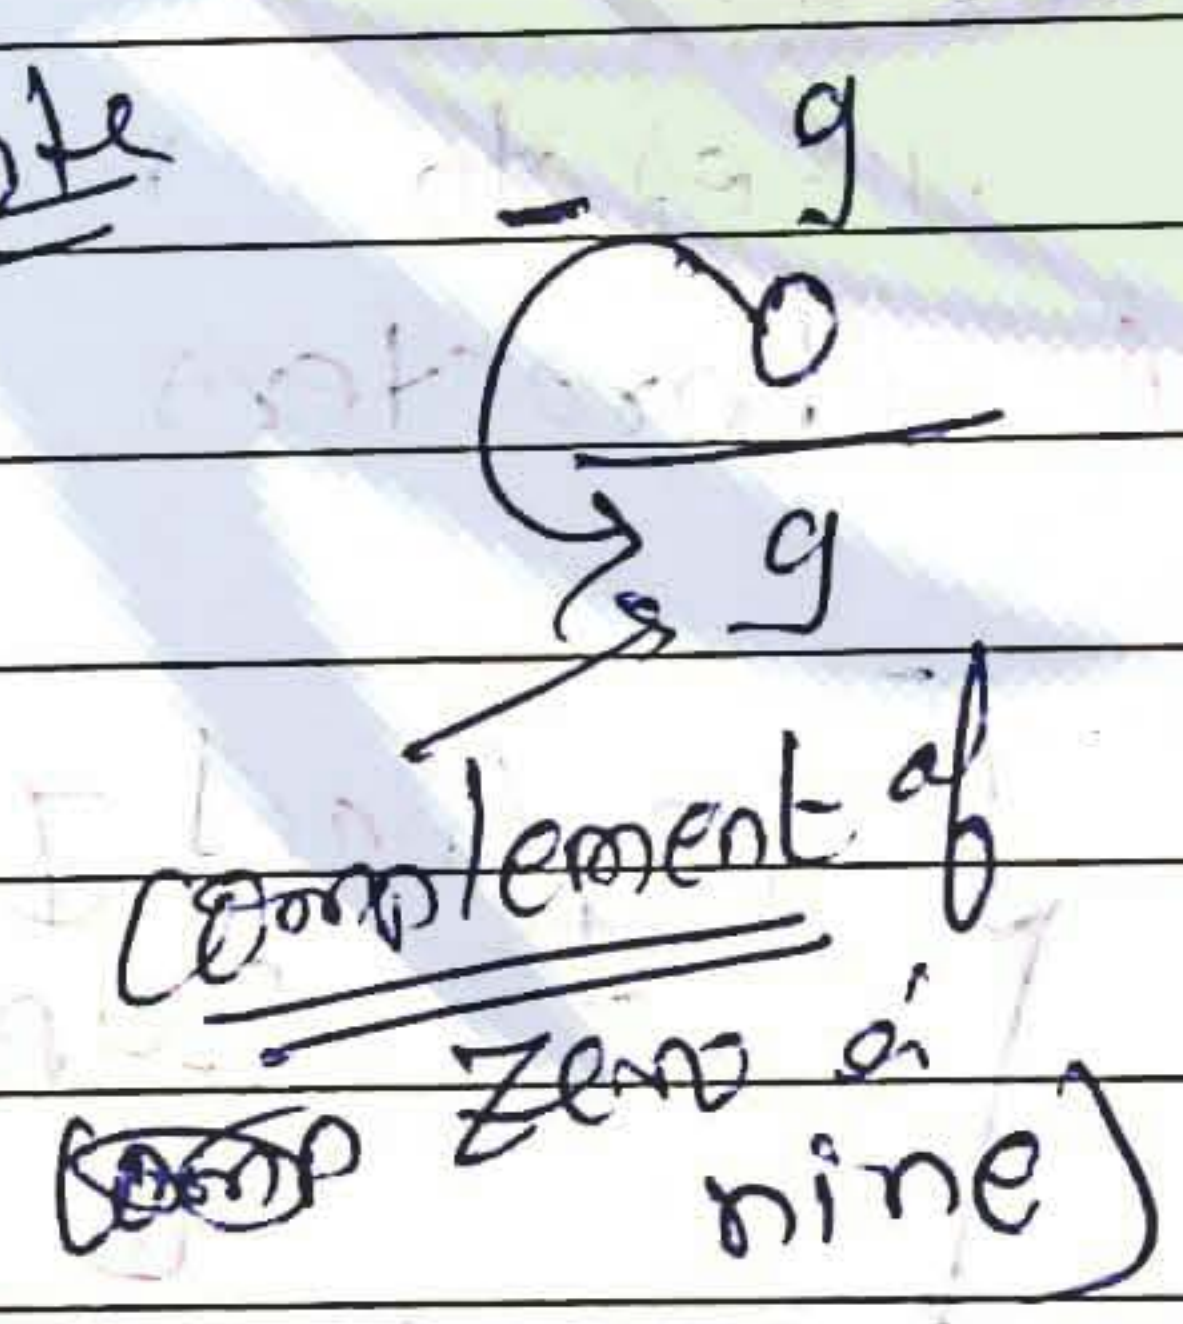 ote
9
- 0
9
(complement of
zero is
nine)